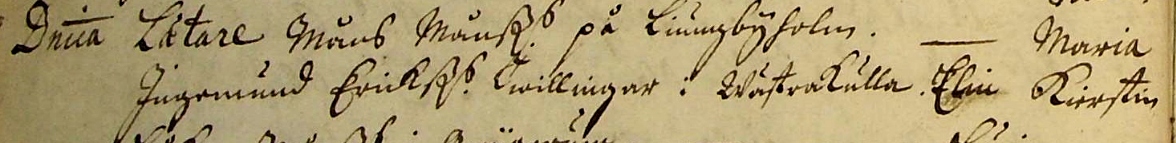 Dnica Lætare Måns Månss. på Liungbyholm. — Maria
Ingemund Erickss. Twillingar i Wästrakulla. Elin Kierstin